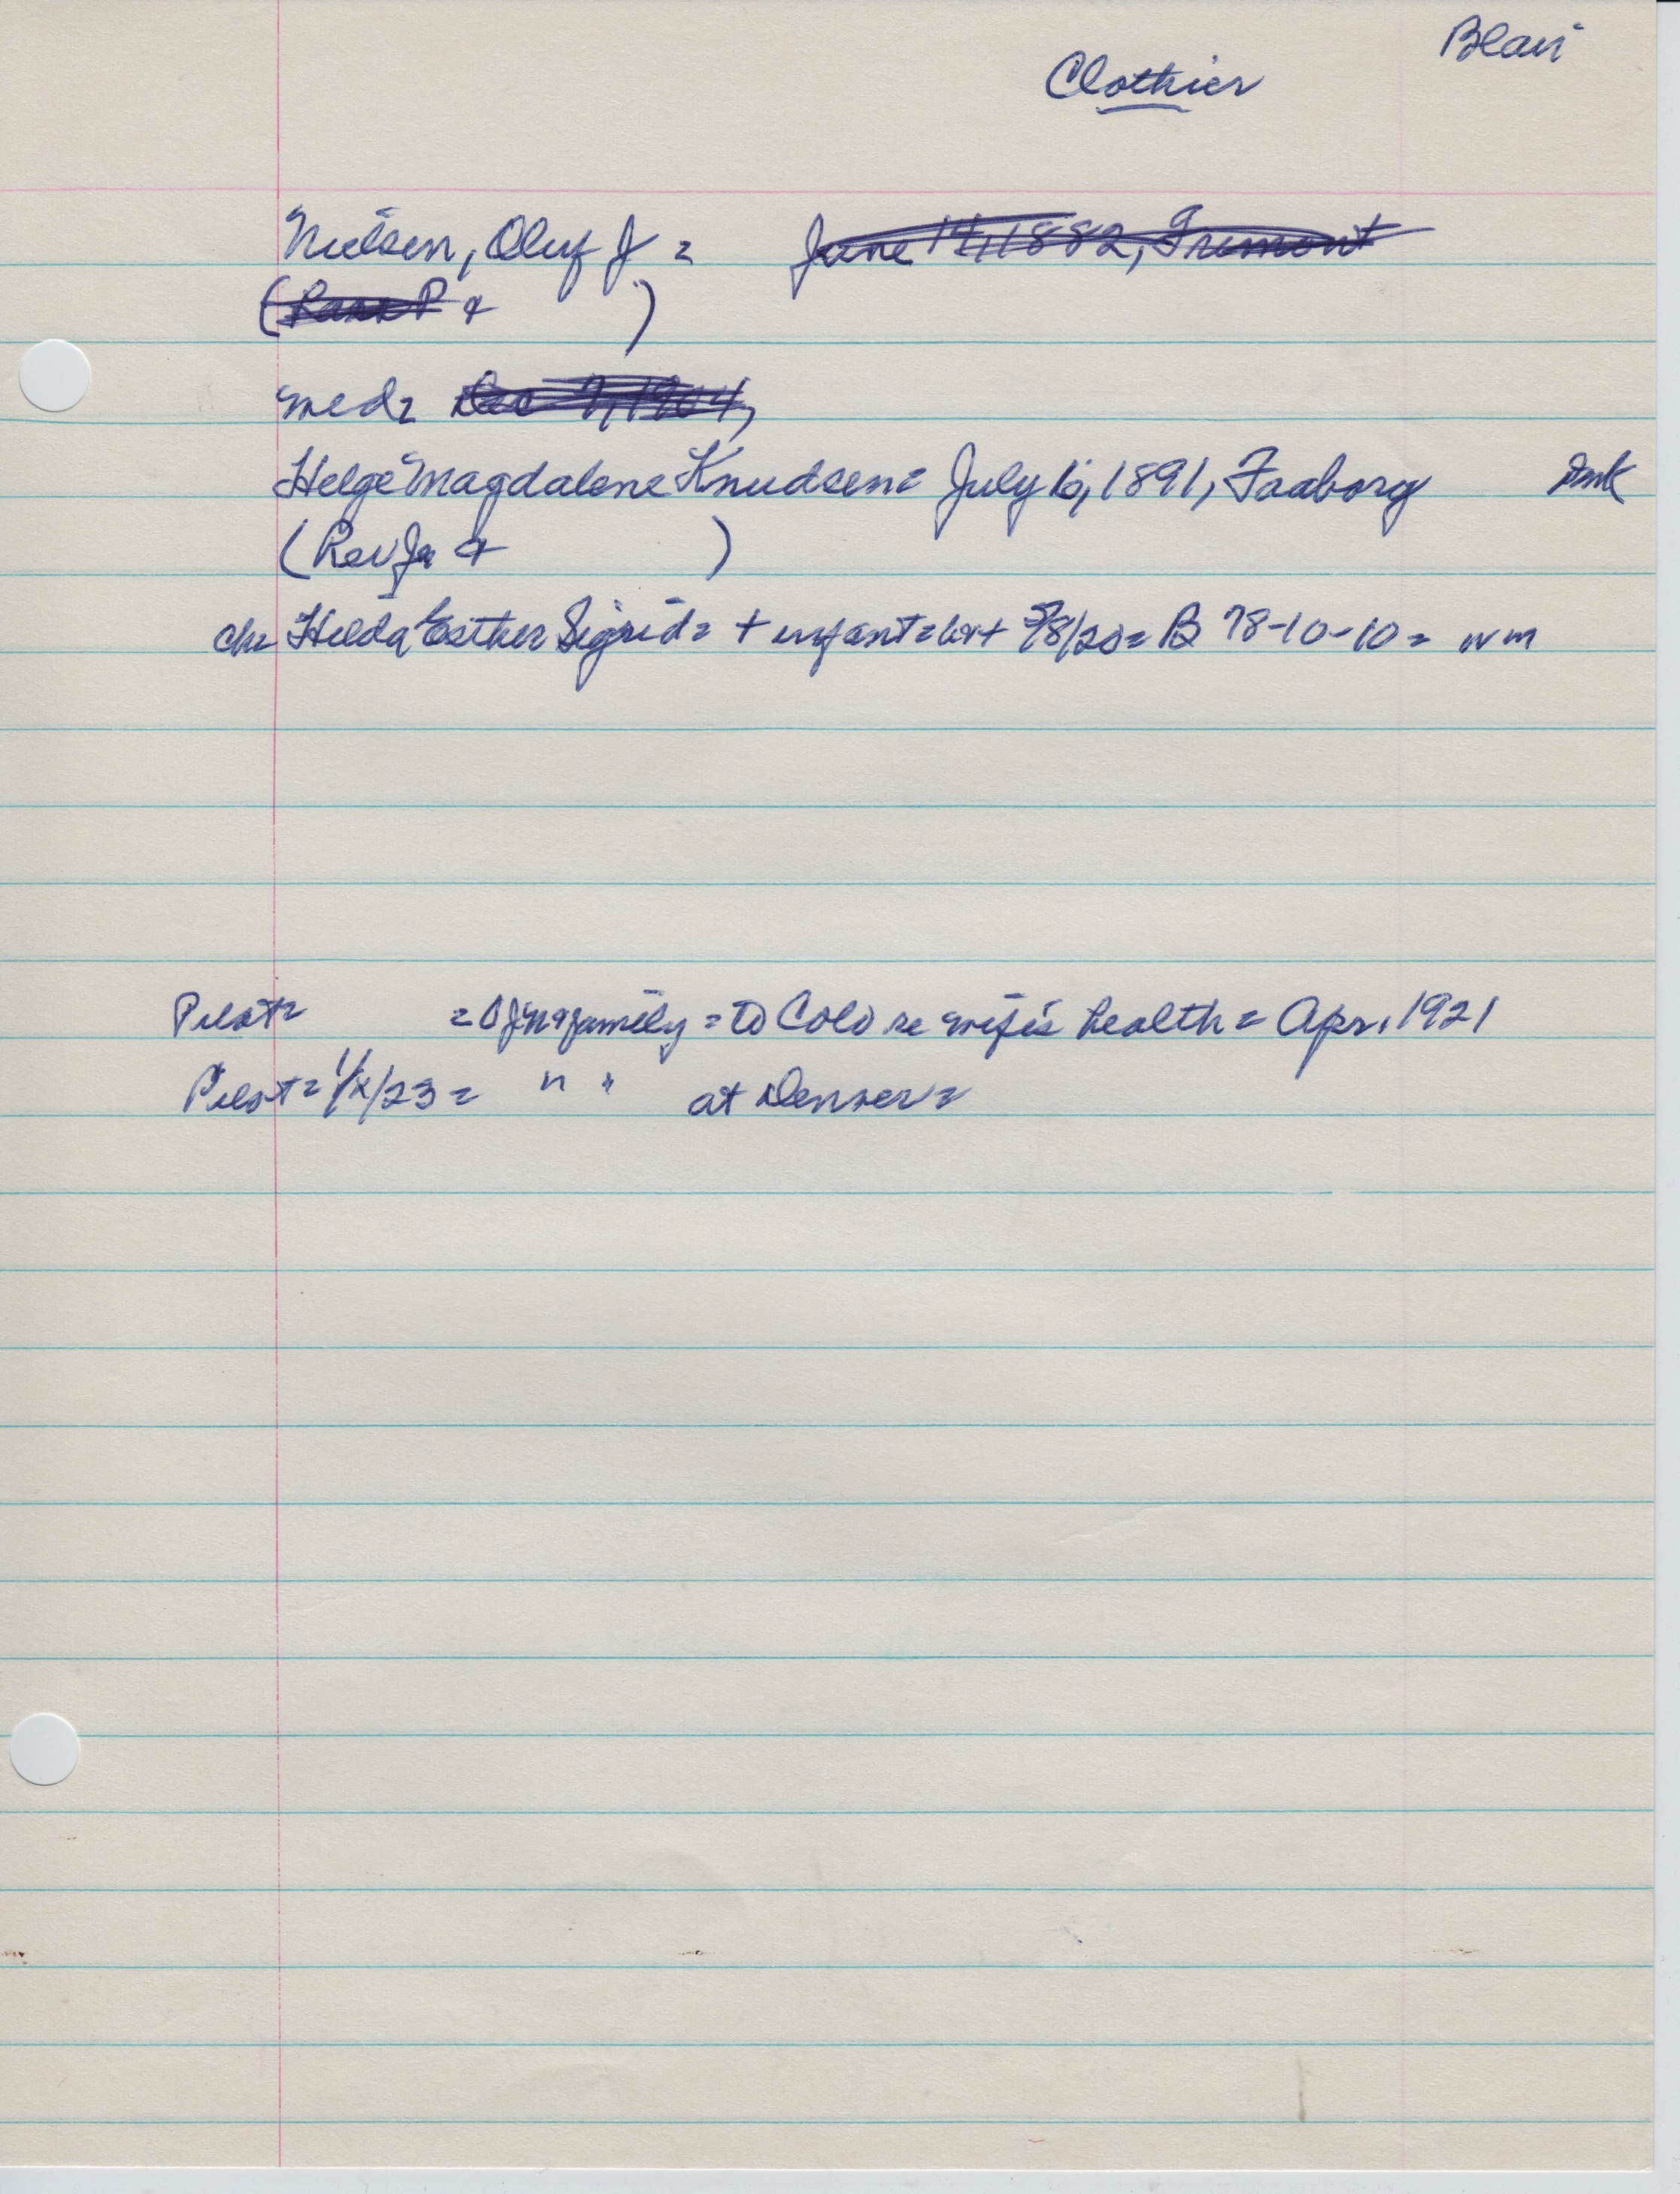 Blair
Clothier
Nielsen, Oluf J =
June 14, 1882, Fremont
( &        )
med=  Dec 7, 1904,
Helge Magdalene Knudsen= July 16, 1891, Faaborg    Dmk
(Rev Ja &        )
ch= Hilda Esther Sigrid= + infant= 5/8/20= B 78-10-10= w m
Pilot=        = OJN & family = to Colo re wife's health = Apr. 1921
Pilot= 1/x/23=    " "    at Denver=